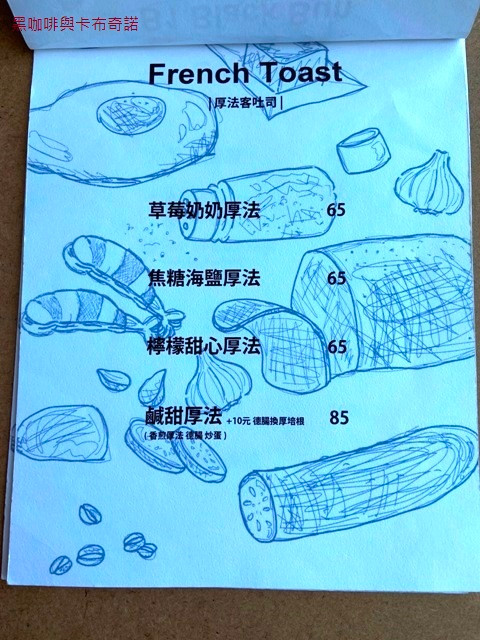 黑咖啡與卡布奇諾
French Toast
|厚法客吐司|
草莓奶奶厚法 65
焦糖海鹽厚法 65
檸檬甜心厚法 65
鹹甜厚法 +10元 德腸換厚培根 85
(香煎厚法 德腸 炒蛋)